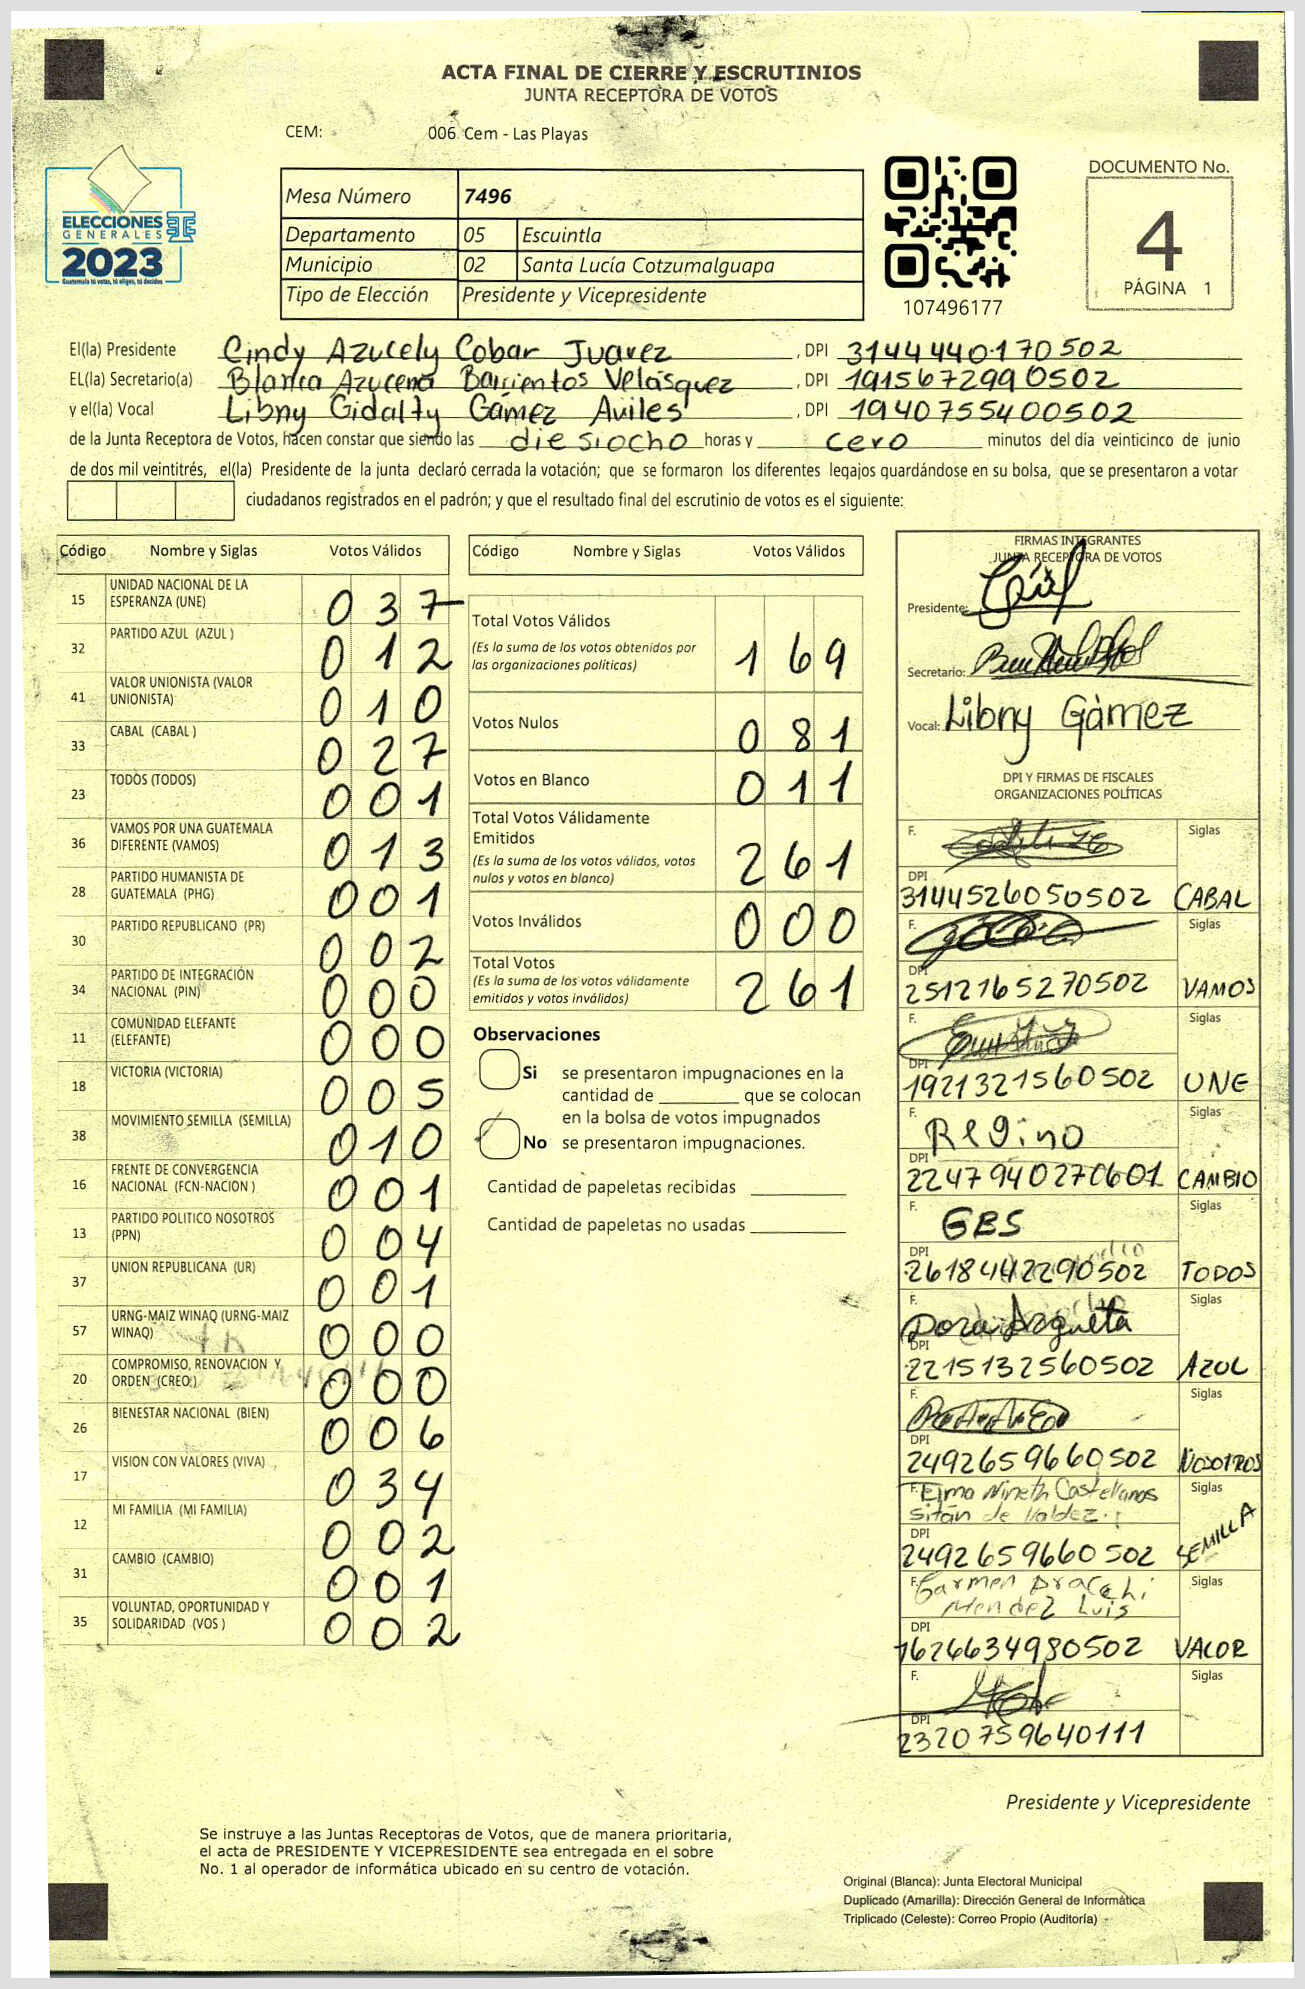 ACTA FINAL DE CIERRE Y ESCRUTINIOS
JUNTA RECEPTORA DE VOTOS
CEM: 006 Cem - Las Playas
ELECCIONES
GENERALES
2023
Guatemala tú votas, tú eliges, tú decides
Mesa Número 7496
Departamento 05 Escuintla
Municipio 02 Santa Lucía Cotzumalguapa
Tipo de Elección Presidente y Vicepresidente
107496177
DOCUMENTO No.
4
PÁGINA 1
El(la) Presidente Cindy Azucely Cobar Juarez, DPI 3144440170502
EL(la) Secretario(a) Blanca Azucena Barrientos Velásquez, DPI 1915672990502
y el(la) Vocal Libny Gidalty Gámez Aviles, DPI 1940755400502
de la Junta Receptora de Votos, hacen constar que siendo las diesiocho horas y cero minutos del día veinticinco de junio
de dos mil veintitrés, el(la) Presidente de la junta declaró cerrada la votación; que se formaron los diferentes legajos guardándose en su bolsa, que se presentaron a votar
ciudadanos registrados en el padrón; y que el resultado final del escrutinio de votos es el siguiente:
Código Nombre y Siglas Votos Válidos
15 UNIDAD NACIONAL DE LA ESPERANZA (UNE) 037
32 PARTIDO AZUL (AZUL ) 012
41 VALOR UNIONISTA (VALOR UNIONISTA) 010
33 CABAL (CABAL ) 027
23 TODOS (TODOS) 001
36 VAMOS POR UNA GUATEMALA DIFERENTE (VAMOS) 013
28 PARTIDO HUMANISTA DE GUATEMALA (PHG) 001
30 PARTIDO REPUBLICANO (PR) 002
34 PARTIDO DE INTEGRACIÓN NACIONAL (PIN) 000
11 COMUNIDAD ELEFANTE (ELEFANTE) 000
18 VICTORIA (VICTORIA) 005
38 MOVIMIENTO SEMILLA (SEMILLA) 010
16 FRENTE DE CONVERGENCIA NACIONAL (FCN-NACION ) 001
13 PARTIDO POLITICO NOSOTROS (PPN) 004
37 UNION REPUBLICANA (UR) 001
57 URNG-MAIZ WINAQ (URNG-MAIZ WINAQ) 000
20 COMPROMISO, RENOVACION Y ORDEN (CREO) 000
26 BIENESTAR NACIONAL (BIEN) 006
17 VISION CON VALORES (VIVA) 034
12 MI FAMILIA (MI FAMILIA) 002
31 CAMBIO (CAMBIO) 001
35 VOLUNTAD, OPORTUNIDAD Y SOLIDARIDAD (VOS ) 002
Código Nombre y Siglas Votos Válidos
Total Votos Válidos 169
(Es la suma de los votos obtenidos por
las organizaciones politicas)
Votos Nulos 081
Votos en Blanco 011
Total Votos Válidamente
Emitidos 261
(Es la suma de los votos válidos, votos
nulos y votos en blanco)
Votos Inválidos 000
Total Votos 261
(Es la suma de los votos válidamente
emitidos y votos inválidos)
Observaciones
Si se presentaron impugnaciones en la
cantidad de ________ que se colocan
en la bolsa de votos impugnados
No se presentaron impugnaciones.
Cantidad de papeletas recibidas
Cantidad de papeletas no usadas
FIRMAS INTEGRANTES
JUNTA RECEPTORA DE VOTOS
Presidente:
Secretario:
Vocal: Libny Gàmez
DPI Y FIRMAS DE FISCALES
ORGANIZACIONES POLÍTICAS
F. Siglas
DPI
3144526050502 CABAL
F. Siglas
DPI
2512165270502 VAMOS
F. Siglas
DPI
1921321560502 UNE
F. Regino Siglas
DPI
2247940270601 CAMBIO
F. GBS Siglas
DPI
2618442290502 TODOS
F. Dora Argueta Siglas
DPI
2215132560502 AZUL
F. Siglas
DPI
2492659660502 NOSOTROS
F. Elma Nineth Castellanos Siglas
Sitán de Valdez
DPI
2492659660502 SEMILLA
F. Carmen Aracehi Siglas
Mendez Luis
DPI
1626634980502 VALOR
F. Siglas
DPI
2320759640111
Presidente y Vicepresidente
Se instruye a las Juntas Receptoras de Votos, que de manera prioritaria,
el acta de PRESIDENTE Y VICEPRESIDENTE sea entregada en el sobre
No. 1 al operador de informática ubicado en su centro de votación.
Original (Blanca): Junta Electoral Municipal
Duplicado (Amarilla): Dirección General de Informática
Triplicado (Celeste): Correo Propio (Auditoría)